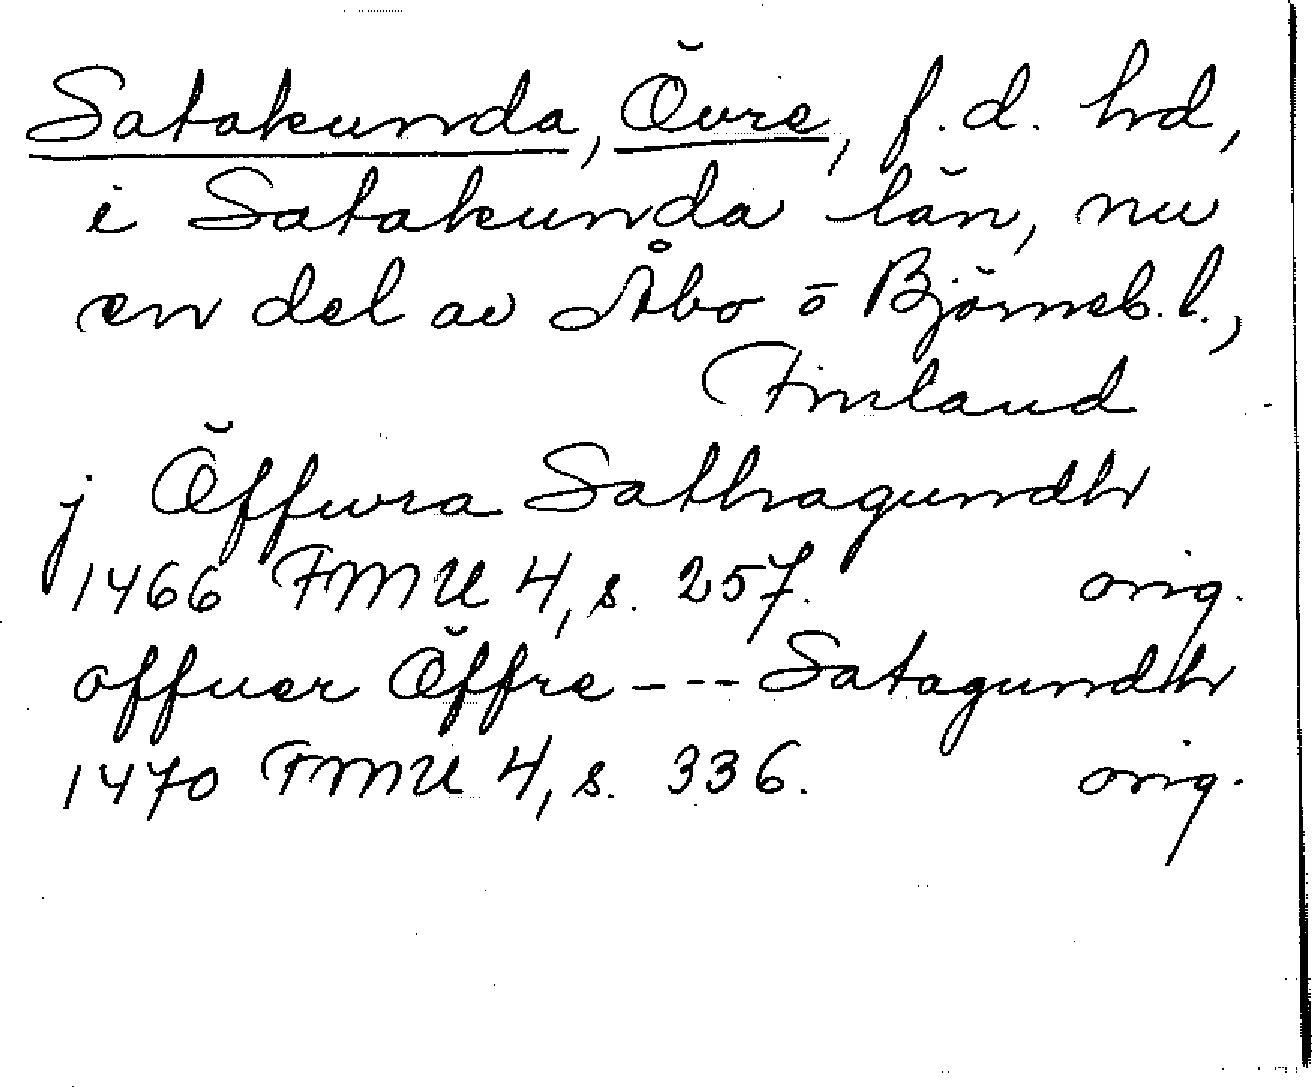 Satakunda, Övre, f.d. hd,
i Satakunda län, nu
en del av Åbo o Björneb. l.,
Finland
j Öffwra Sathagundh
1466 FMU 4, s. 257. orig.
offuer Öffre --- Satagundh
1470 FMU 4, s. 336. orig.